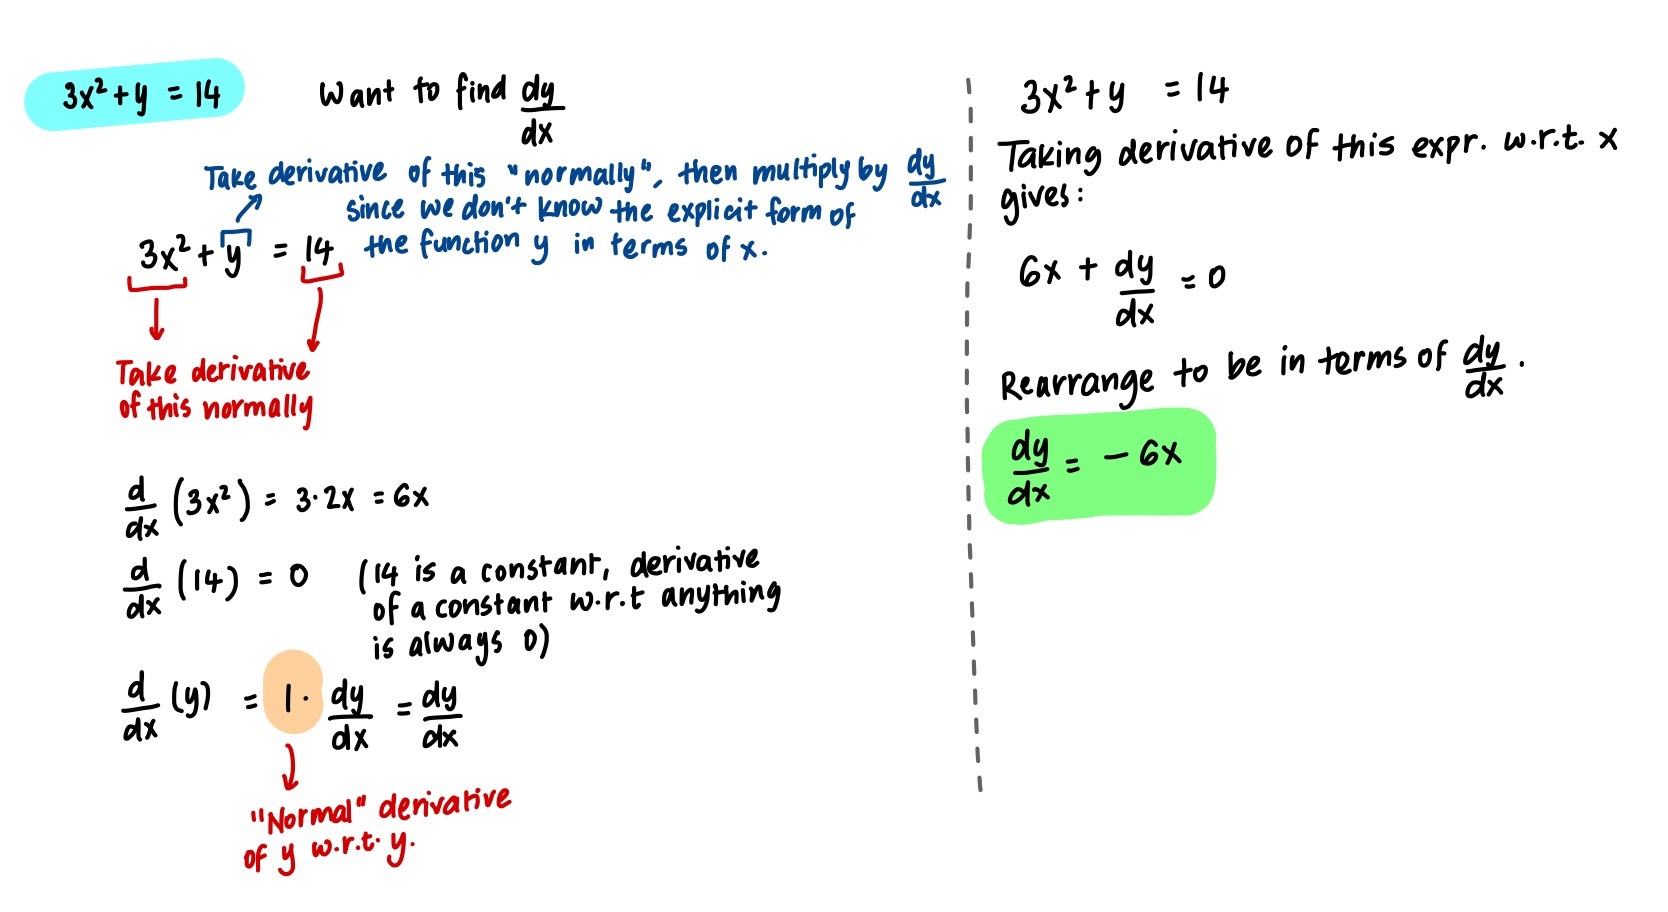 3x² + y = 14
Want to find dy/dx
Take derivative of this "normally", then multiply by dy/dx
since we don't know the explicit form of
the function y in terms of x.
3x² + y = 14
Take derivative
of this normally
d/dx (3x²) = 3·2x = 6x
d/dx (14) = 0
(14 is a constant, derivative
of a constant w.r.t anything
is always 0)
d/dx (y) = 1· dy/dx = dy/dx
"Normal" derivative
of y w.r.t. y.
3x² + y = 14
Taking derivative of this expr. w.r.t. x
gives:
6x + dy/dx = 0
Rearrange to be in terms of dy/dx.
dy/dx = -6x